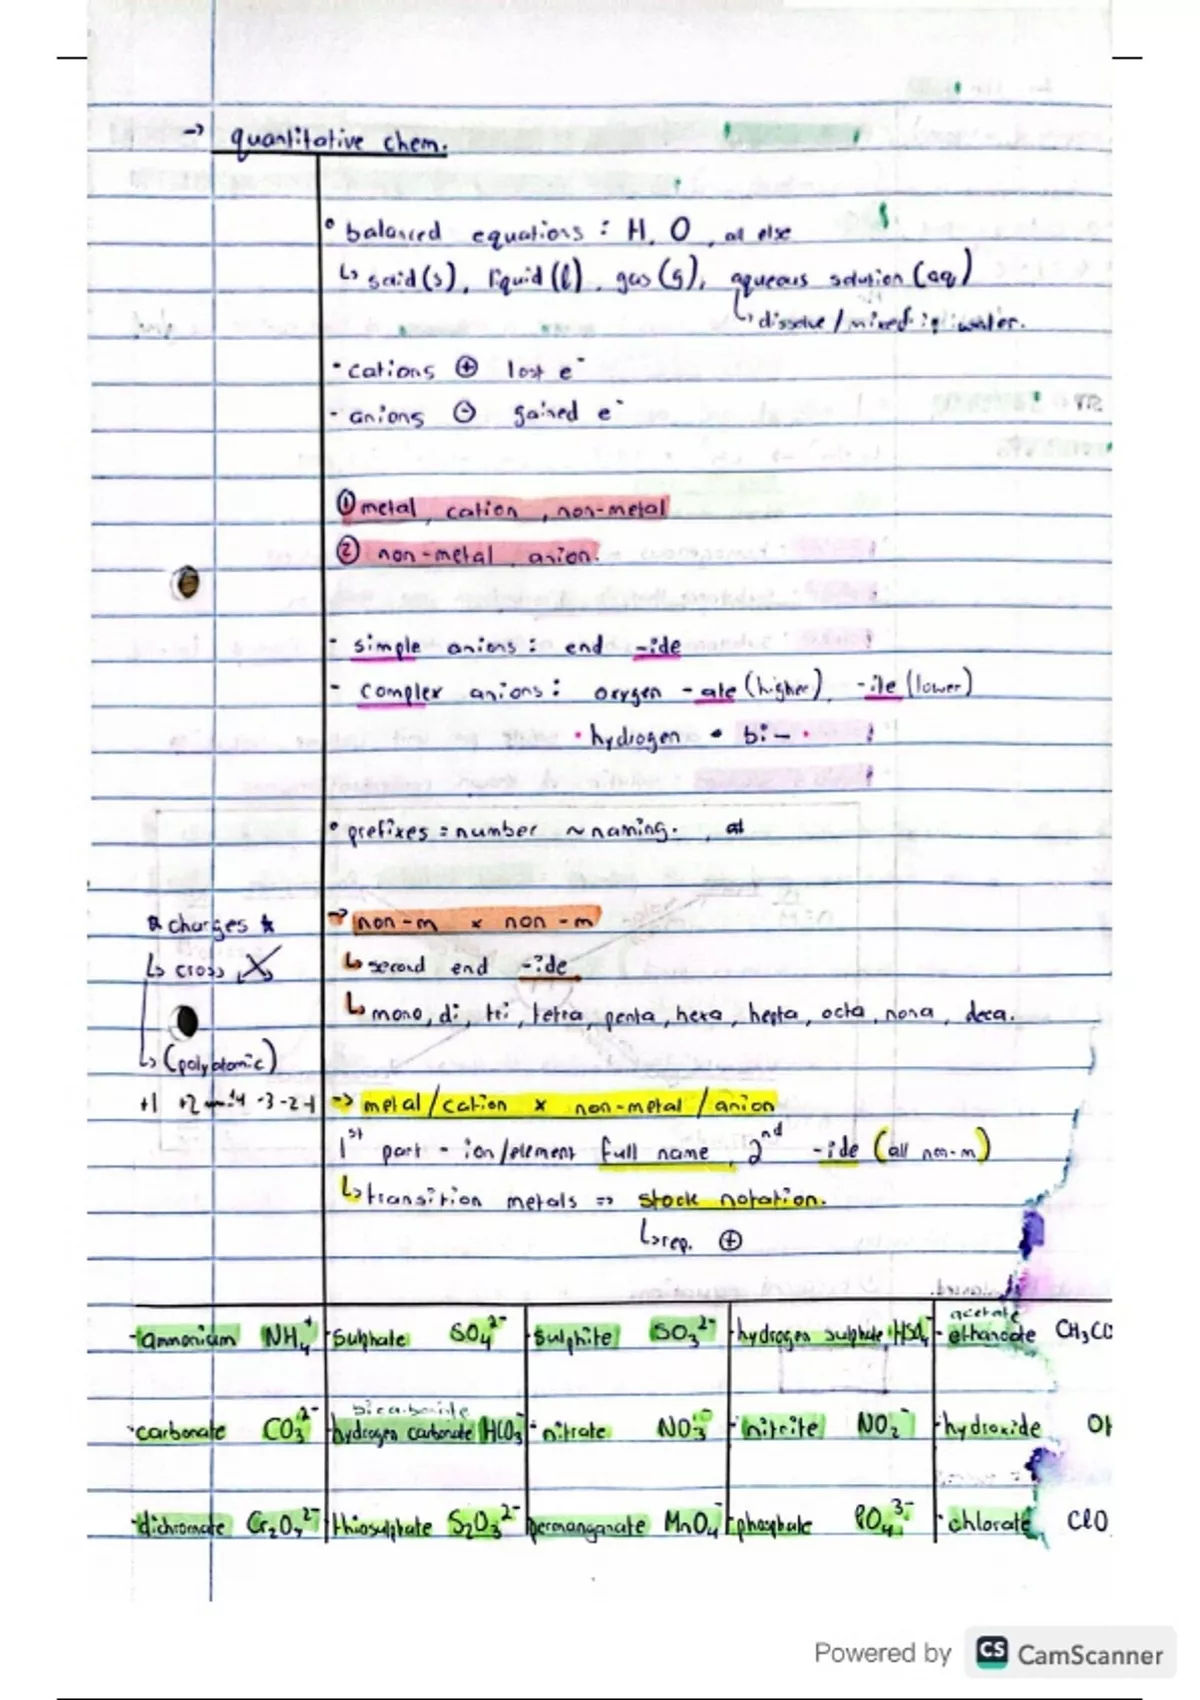 → quantitative chem.
• balanced equations : H, O , all else
↳ solid (s), liquid (l), gas (g), aqueous solution (aq)
↳ dissolve / mixed in water.
- cations ⊕ lost e⁻
- anions ⊖ gained e⁻
① metal, cation, non-metal
② non-metal, anion.
- simple anions : end -ide
- complex anions : oxygen -ate (higher), -ite (lower)
• hydrogen • bi- •
• prefixes = number ~ naming.
☆ charges ☆
↳ cross
↳ (polyatomic)
+1 +2 -3 -2 -1
→ non-m x non-m
↳ second end -ide
↳ mono, di, tri, tetra, penta, hexa, hepta, octa, nona, deca.
→ metal/cation x non-metal/anion
1st part - ion/element full name, 2nd -ide (all non-m)
↳ transition metals => stock notation.
↳ rep. ⊕
- ammonium NH₄⁺ - sulphate SO₄²⁻ - sulphite SO₃²⁻ - hydrogen sulphate HSO₄⁻ - acetate ethanoate CH₃CO
bicarbonate
- carbonate CO₃²⁻ hydrogen carbonate HCO₃⁻ - nitrate NO₃⁻ - nitrite NO₂⁻ - hydroxide OH
- dichromate Cr₂O₇²⁻ - thiosulphate S₂O₃²⁻ permanganate MnO₄⁻ - phosphate PO₄³⁻ - chlorate ClO
Powered by CS CamScanner